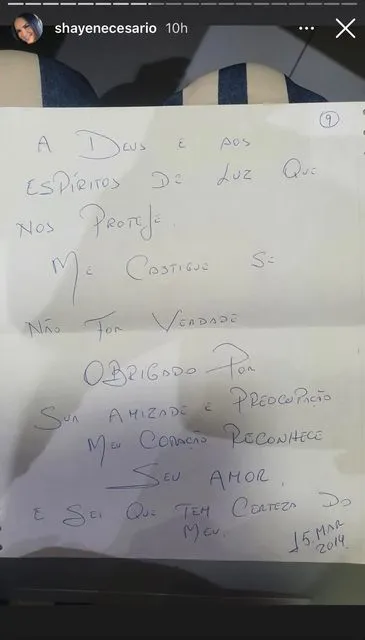 shayenecesario 10h
9
A DEUS E AOS
ESPÍRITOS DE LUZ QUE
NOS PROTEJE.
ME CASTIGUE SE
NÃO FOR VERDADE
OBRIGADO POR
SUA AMIZADE E PREOCUPAÇÃO
MEU CORAÇÃO RECONHECE
SEU AMOR.
E SEI QUE TEM CERTEZA DO
MEU.
15.MAR
2014.